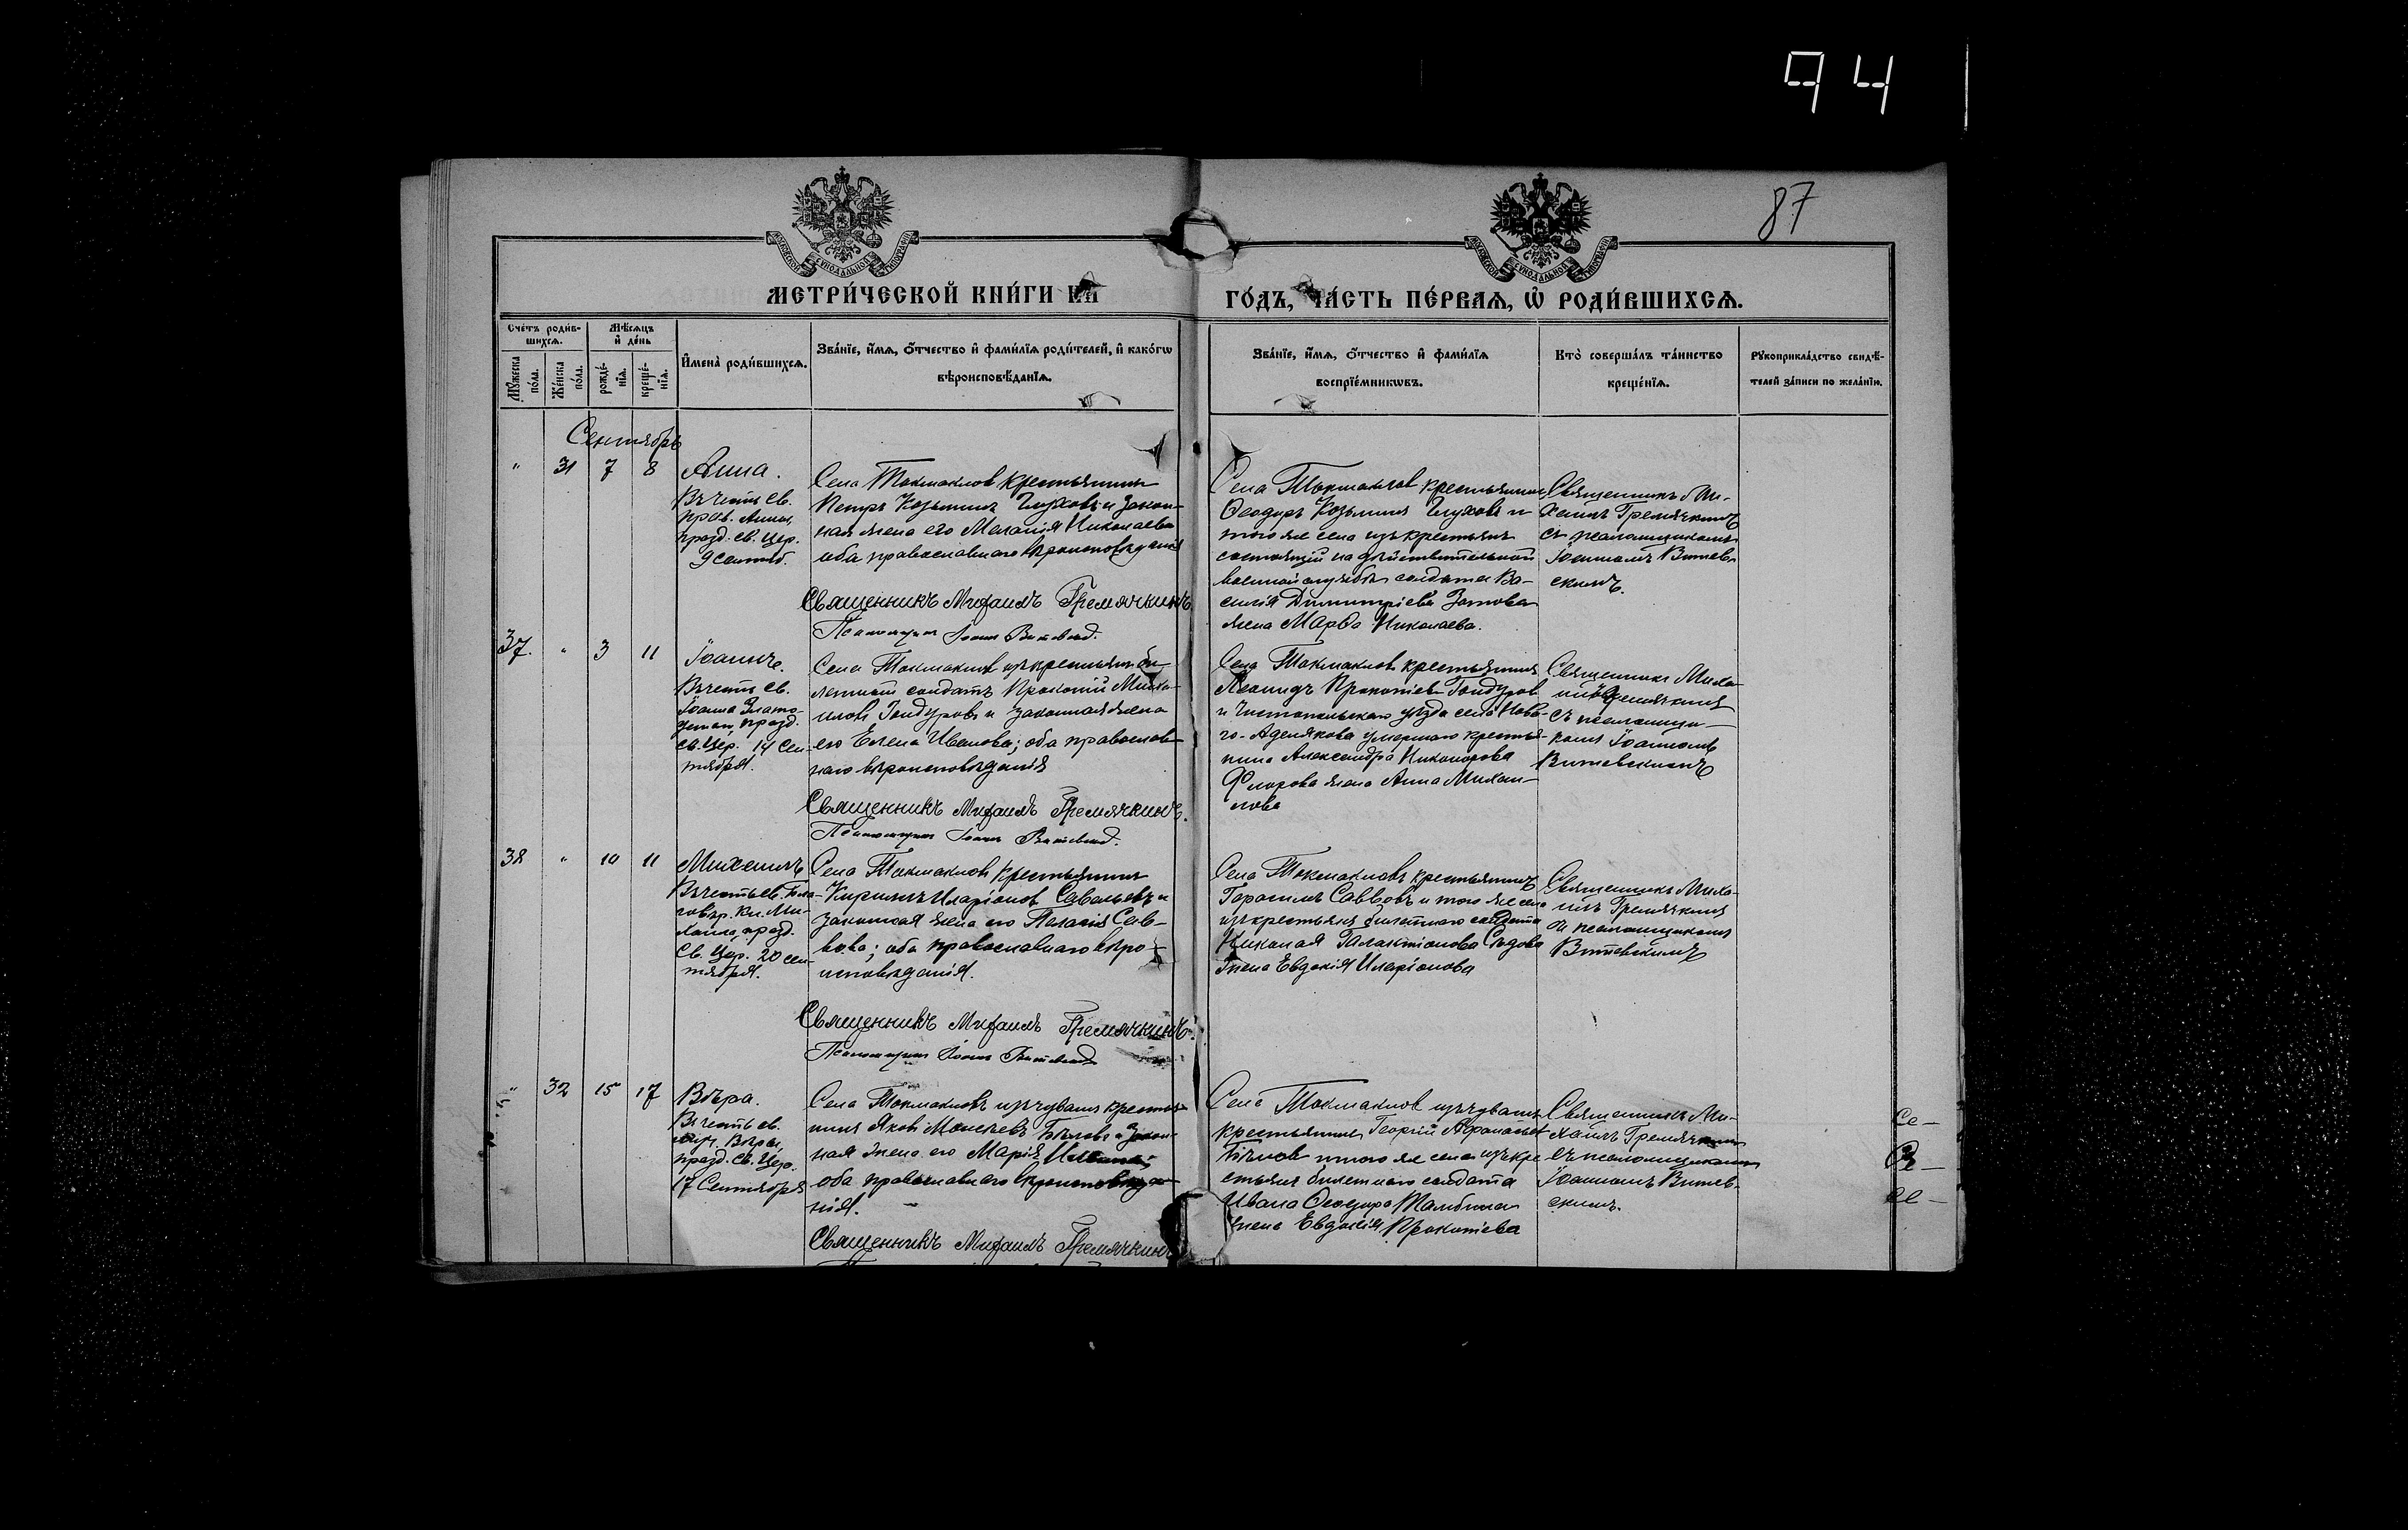 94
87
МОСКОВСКОЙ СѴНОДАЛЬНОЙ ТИПОГРАФІИ
МОСКОВСКОЙ СѴНОДАЛЬНОЙ ТИПОГРАФІИ
МЕТРИ́ЧЕСКОЙ КНИ́ГИ НА ГО́ДЪ, ЧА́СТЬ ПЕ́РВАѦ, Ѡ҆ РОДИ́ВШИХСѦ.
Сче́тъ роди́в-
шихсѧ.
Мѣ́сѧцъ
и҆ де́нь
Мꙋ́жеска
по́ла.
Же́нска
по́ла.
рожде́-
нїѧ.
креще́-
нїѧ.
И҆мена̀ роди́вшихсѧ.
Зва́нїе, и҆́мѧ, ѻ҆́тчество и҆ фами́лїѧ роди́телей, и҆ како́гѡ
вѣроисповѣ́данїѧ.
Зва́нїе, и҆́мѧ, ѻ҆́тчество и҆ фами́лїѧ
воспрїе́мникѡвъ.
Кто̀ соверша́лъ та́инство
креще́нїѧ.
Рꙋкоприкла́дство свидѣ́-
телей за́писи по жела́нїю.
Сентябрь
" 31 7 8
Анна.
Въ честь св.
прав. Анны,
празд. св. Цер.
9 сентяб.
Села Токмаклов крестьянинъ
Петръ Козьминъ Глуховъ и закон-
ная жена его Меланія Николаева
оба православнаго вѣроисповѣданія
Священникъ Михаилъ Гремячкинъ
Псаломщикъ Іоаннъ Витевскій.
Села Токмаклов крестьянинъ
Ѳеодоръ Козьминъ Глуховъ и
того же села изъ крестьянъ
состоящій на дѣйствительной
военной службѣ солдата Ва-
силія Димитріева Зотова
жена Марѳа Николаева.
Священникъ Ми-
хаилъ Гремячкинъ
съ псаломщикомъ
Іоанномъ Витев-
скимъ.
37. " 3 11
Іоаннъ.
Въ честь св.
Іоанна Злато-
устаго, празд.
св. Цер. 14 сен-
тября.
Села Токмаклов изъ крестьян би-
летный солдатъ Прокопій Михаи-
ловъ Гондуровъ и законная жена
его Елена Иванова; оба православ-
наго вѣроисповѣданія
Священникъ Михаилъ Гремячкинъ.
Псаломщикъ Іоаннъ Витевскій.
Села Токмаклов крестьянинъ
Леонидъ Прокопіев Гондуров
и Чистопольскаго уѣзда села Ново-
го-Аделякова умершаго крестья-
нина Александра Никонорова
Флорова жена Анна Михаи-
лова
Священникъ Миха-
илъ Гремячкинъ
съ псаломщи-
комъ Іоанномъ
Витевскимъ
38 " 10 11
Михаилъ
Въ честь св. Бла-
говѣр. Кн. Ми-
хаила, празд.
Св. Цер. 20 сен-
тября.
Села Токмаклов крестьянинъ
Кириллъ Иларіонов Савельевъ и
законная жена его Пелагія Сав-
вова; оба православнаго вѣро-
исповѣданія.
Священникъ Михаилъ Гремячкинъ.
Псаломщикъ Іоаннъ Витевскій
Села Токмаклов крестьянинъ
Герасимъ Саввовъ и того же села
изъ крестьянъ билетнаго солдата
Николая Галактіонова Сѣдова
жена Евдокія Иларіонова
Священникъ Миха-
илъ Гремячкинъ
и псаломщикомъ
Витевскимъ
" 32 15 17
Вѣра.
Въ честь св.
муч. Вѣры,
празд. св. Цер.
17 Сентября
Села Токмакловъ изъ чувашъ крестья-
нинъ Яковъ Моисеевъ Бѣловъ и закон-
ная жена его Марія
оба православнаго вѣроисповѣда-
нія.
Священникъ Михаилъ Гремячкинъ
Села Токмаклов изъ чувашъ
крестьянинъ Георгій Аѳанасьев
Бѣлов и того же села изъ кре
стьянъ билетнаго солдата
Ивана Ѳеодора Тамбина
жена Евдокія Прокопіева
Священникъ Ми-
хаилъ Гремячкинъ
съ псаломщикомъ
Іоанномъ Витев-
скимъ.